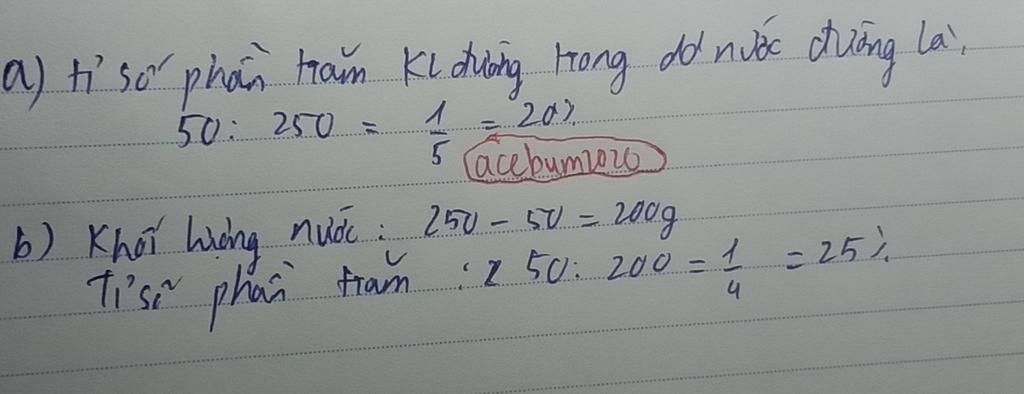 a) tỉ số phần trăm KL đường trong dd nước đường là,
50 : 250 = 1/5 = 20%
acebum2020
b) Khối lượng nước : 250 - 50 = 200g
Tỉ số phần trăm : 50 : 200 = 1/4 = 25%